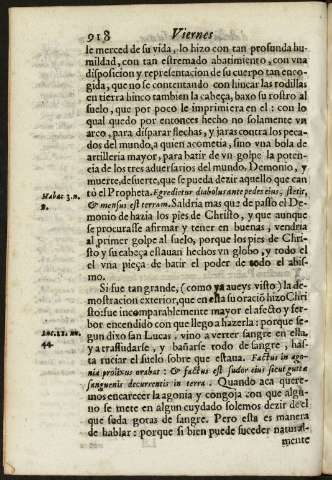 918 Viernes
le merced de su vida, lo hizo con tan profunda hu-
mildad, con tan estremado abatimiento, con vna
disposicion y representacion de su cuerpo tan enco-
gida, que no se contentando con hincar las rodillas
en tierra hinco tambien la cabeça, baxo su rostro al
suelo, que por poco le imprimiera en el: con lo
qual quedo por entonces hecho no solamente vn
arco, para disparar flechas, y jaras contra los peca-
dos del mundo, a quien acometia, sino vna bola de
artilleria mayor, para batir de vn golpe la poten-
cia de los tres aduersarios del mundo, Demonio, y
muerte, de suerte, que se pueda dezir aquello que can
tò el Propheta. Egredietur diabolus ante pedes eius, stetit,
Habac 3. n.
& mensus est terram. Saldria mas que de passo el De-
monio de hazia los pies de Christo, y que aunque
se procurasse afirmar y tener en buenas, vendria
al primer golpe al suelo, porque los pies de Chri-
sto y su cabeça estauan hechos vn globo, y todo el
el vna pieça de batir el poder de todo el abis-
mo.
Si fue tan grande, (como ya aueys visto) la de-
mostracion exterior, que en esta su oraciō hizo Chri
sto: fue incomparablemente mayor el afecto y fer-
bor encendido con que llego a hazerla: porque se-
Luc. 22. nu.
gun dixo san Lucas, vino a verter sangre en ella,
44.
y a trassudarse, y bañarse todo de sangre, has-
ta ruciar el suelo sobre que estaua. Factus in ago-
nia prolixius orabat: & factus est sudor eius sicut guttæ
sanguinis decurrentis in terra. Quando aca quere-
mos encarecer la agonia y congoja con que algu-
no se mete en algun cuydado solemos dezir de el
que suda gotas de sangre. Pero esta es manera
de hablar: porque si bien puede suceder natural-
mente